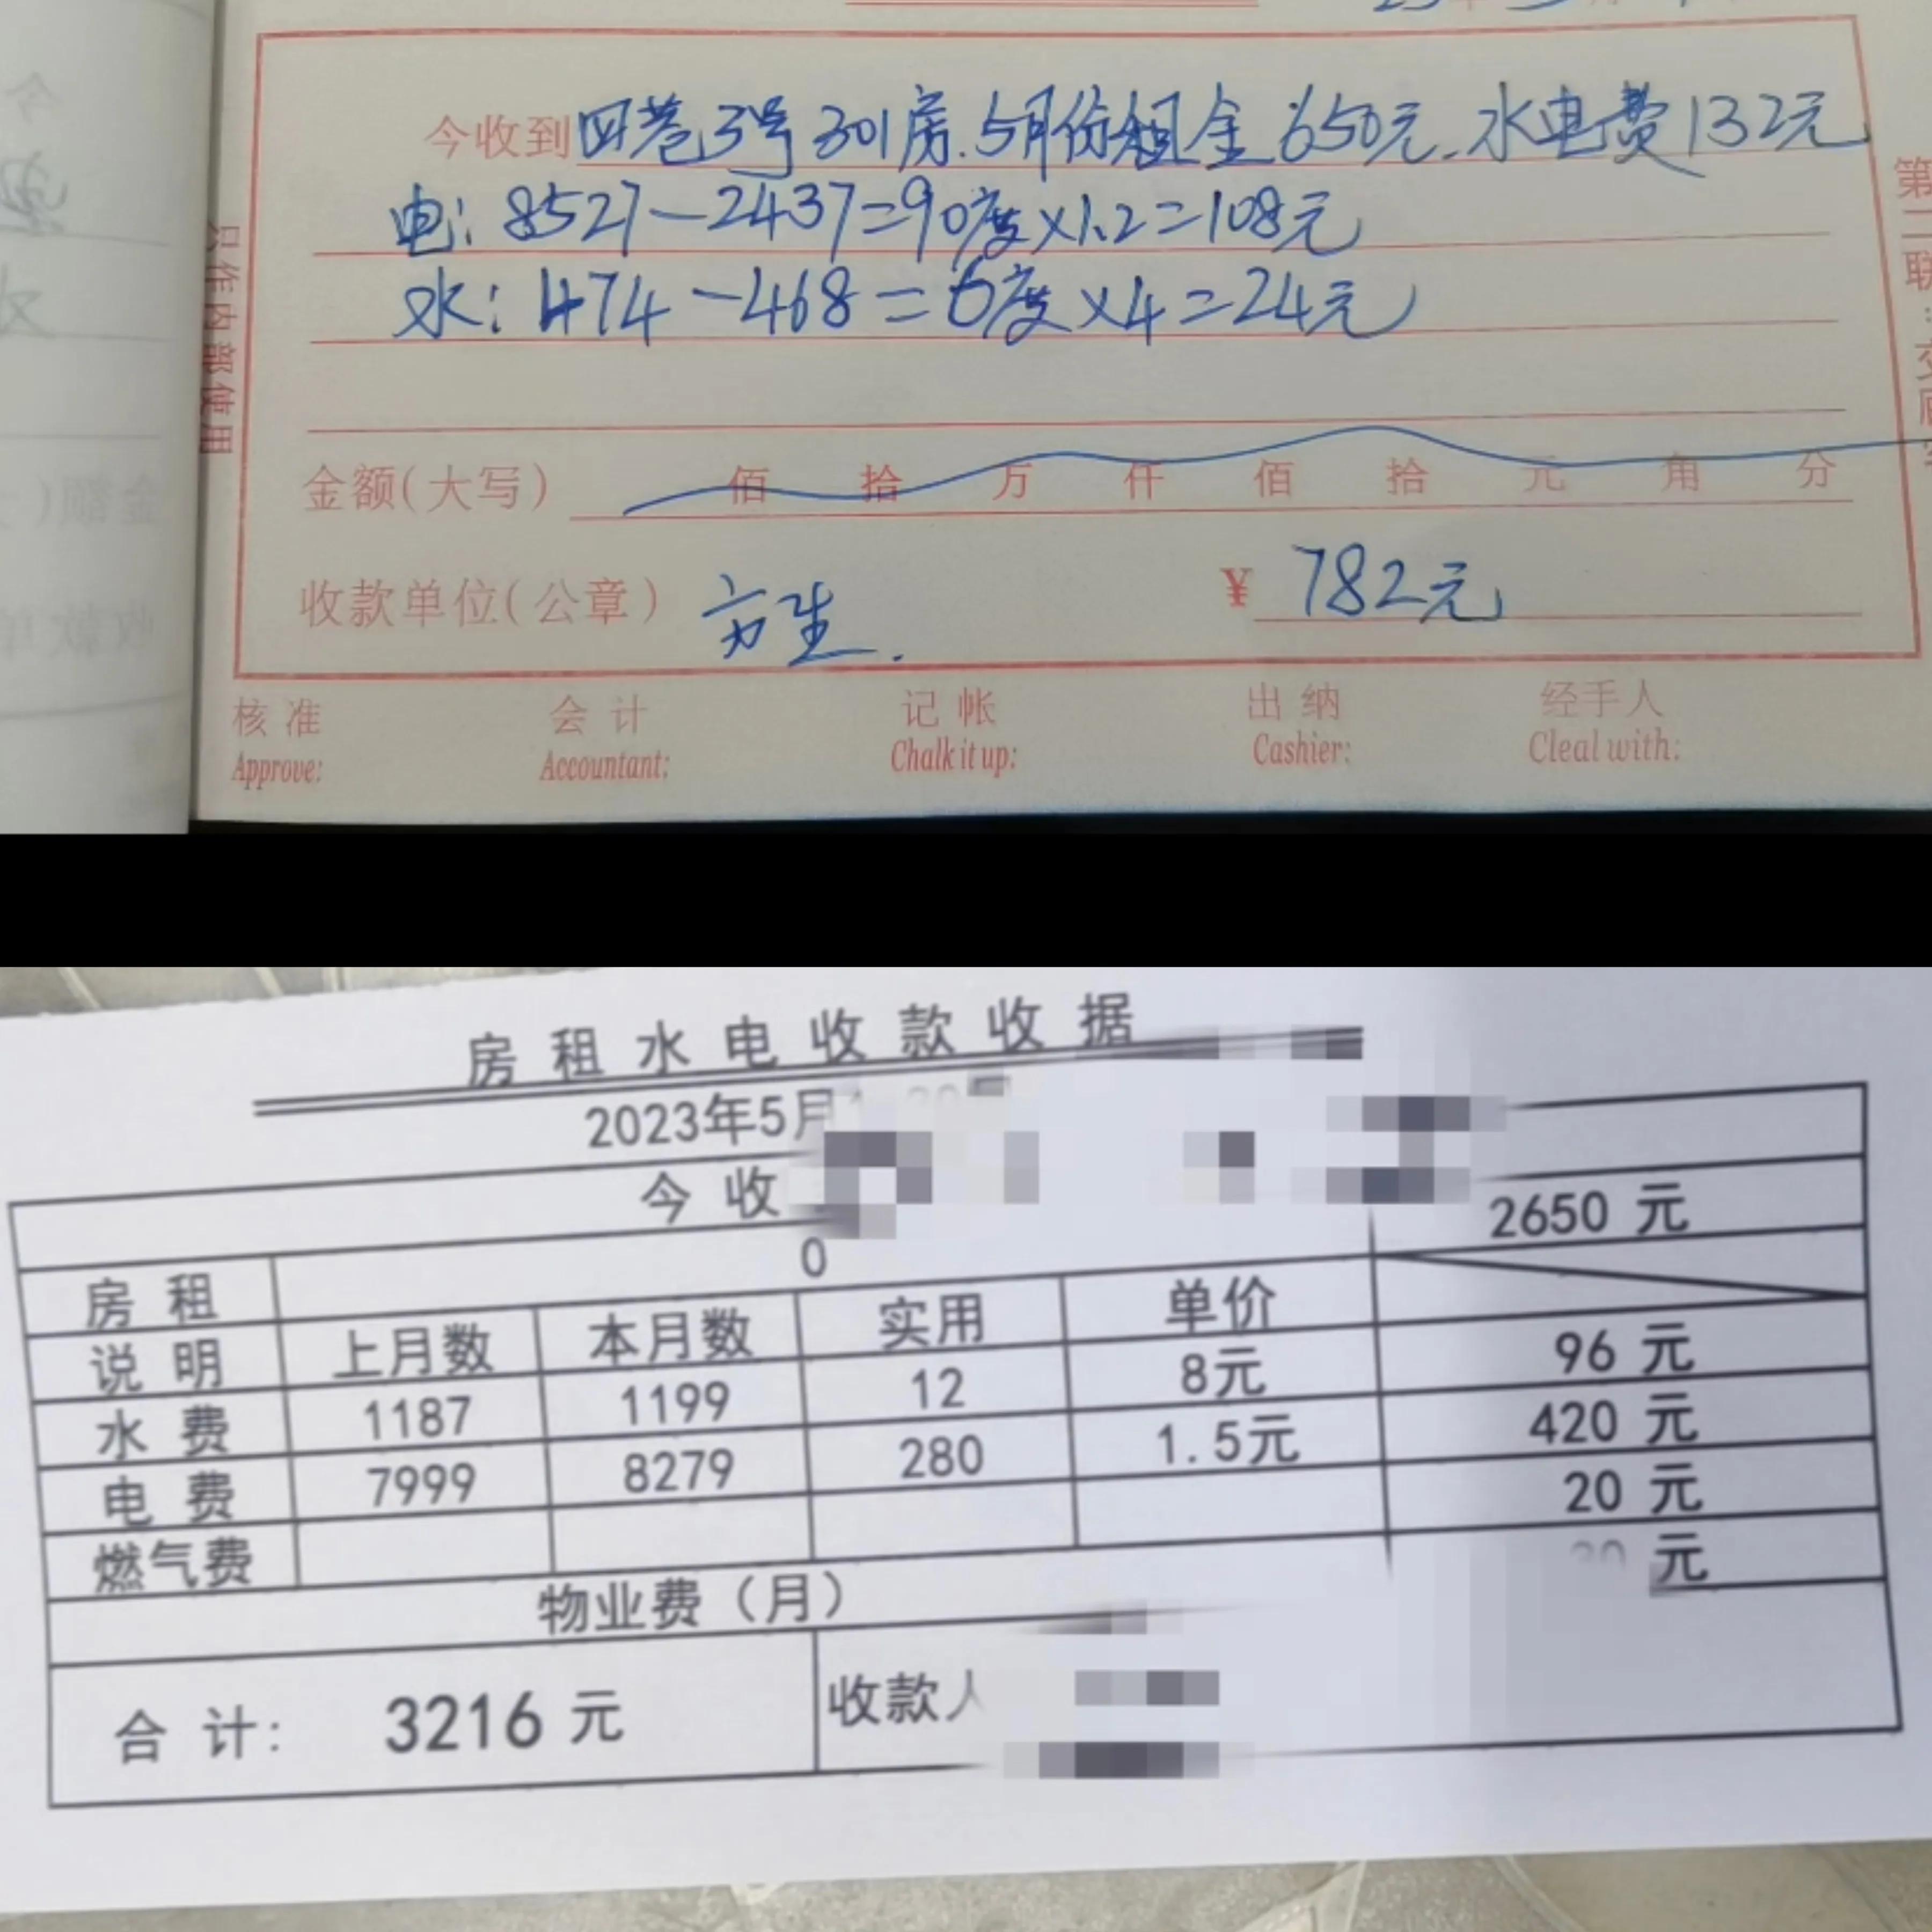 今收到四巷3号301房.5月份租金650元.水电费132元
电:8527-2437=90度×1.2=108元
水:474-468=6度×4=24元
只作内部使用
第二联:交顾客
金额(大写) 佰 拾 万 仟 佰 拾 元 角 分
收款单位(公章) 方生. ¥ 782元
核准 会计 记帐 出纳 经手人
Approve: Accountant: Chalk it up: Cashier: Cleal with:
房租水电收款收据
2023年5月
今收
房租 0 2650元
说明 上月数 本月数 实用 单价
水费 1187 1199 12 8元 96元
电费 7999 8279 280 1.5元 420元
燃气费 20元
物业费(月) 元
合计: 3216元 收款人